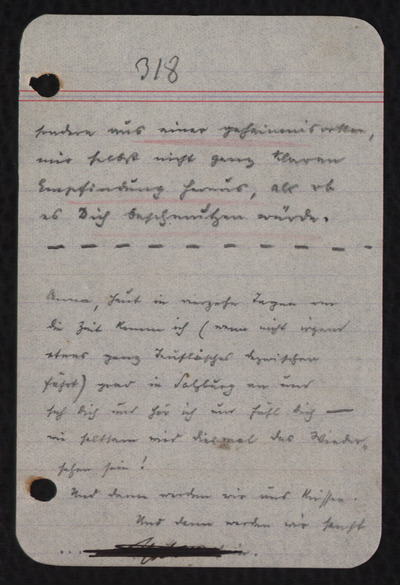 318
sondern aus einer geheimnisvollen,
mir selbst nicht ganz klaren
Empfindung heraus, als ob
es Dich beschmutzen würde.
Anna, heut in vierzehn Tagen um
die Zeit komm ich (wenn nicht irgend
etwas ganz Teuflisches dazwischen
fährt) grad in Salzburg an und
seh Dich und hör ich und fühl Dich —
wie seltsam wird diesmal das Wieder-
sehen sein!
Und dann werden wir uns küssen.
Und dann werden wir sanft
...